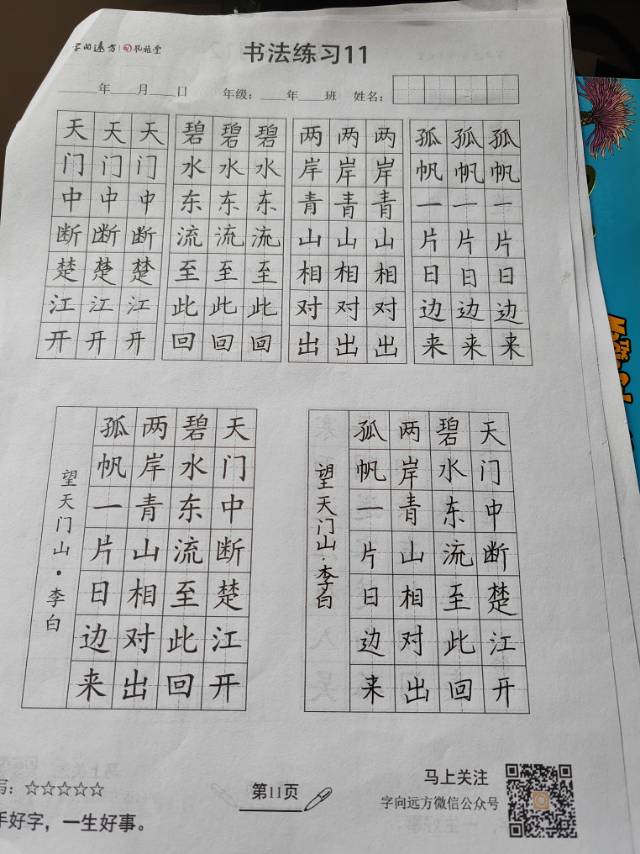 字向远方
书法练习11
年 月 日 年级: 年 班 姓名:
天天天
门门门
中中中
断断断
楚楚楚
江江江
开开开
碧碧碧
水水水
东东东
流流流
至至至
此此此
回回回
两两两
岸岸岸
青青青
山山山
相相相
对对对
出出出
孤孤孤
帆帆帆
一一一
片片片
日日日
边边边
来来来
天门中断楚江开
碧水东流至此回
两岸青山相对出
孤帆一片日边来
望天门山·李白
天门中断楚江开
碧水东流至此回
两岸青山相对出
孤帆一片日边来
望天门山·李白
写: ☆☆☆☆☆
手好字，一生好事。
第11页
马上关注
字向远方微信公众号